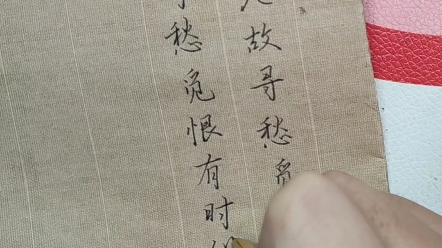 故寻愁觅
愁觅恨有时